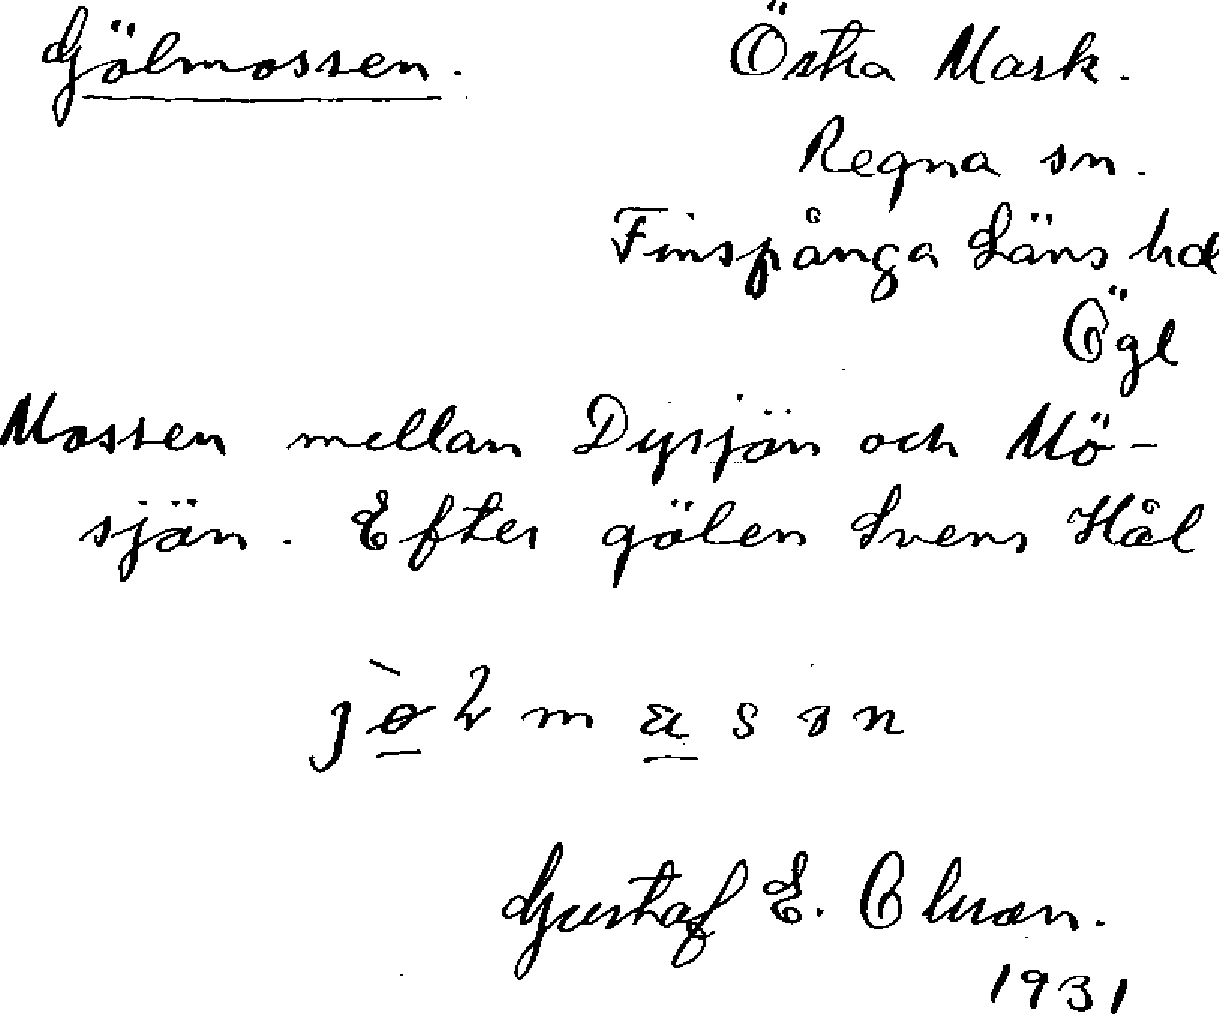 Gölmossen. Östra Mark.
Regna sn.
Finspånga Läns hd
Ögl
Mossen mellan Dysjön och Mö-
sjön. Efter gölen Svens Hål
Gustaf E. Olsson.
1931